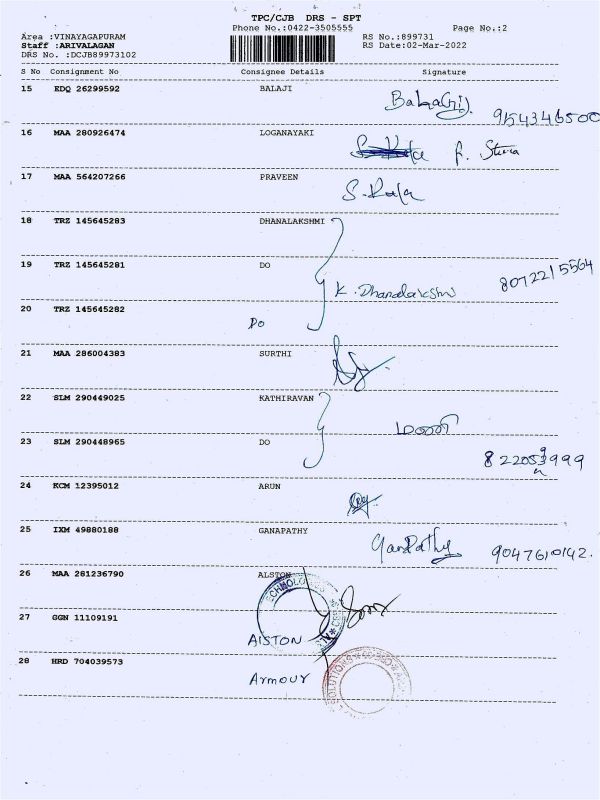 TPC/CJB DRS - SPT
Phone No.:0422-3505555 Page No.:2
Area :VINAYAGAPURAM RS No.:899731
Staff :ARIVALAGAN RS Date:02-Mar-2022
DRS No. :DCJB89973102
S No Consignment No Consignee Details Signature
15 EDQ 26299592 BALAJI
Balaji 9154346500
16 MAA 280926474 LOGANAYAKI
17 MAA 564207266 PRAVEEN
S. Kala
18 TRZ 145645283 DHANALAKSHMI
19 TRZ 145645281 DO
K. Dhanalakshmi 8072215564
20 TRZ 145645282
Do
21 MAA 286004383 SURTHI
22 SLM 290449025 KATHIRAVAN
23 SLM 290448965 DO
24 KCM 12395012 ARUN
25 IXM 49880188 GANAPATHY
GanPathy 9047610142.
26 MAA 281236790 ALSTON
27 GGN 11109191
AlSTON
28 HRD 704039573
Armour